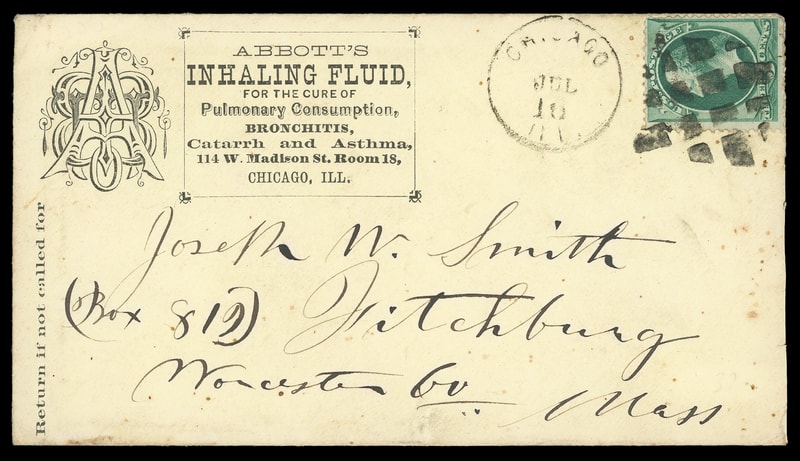 ABBOTT'S
INHALING FLUID,
FOR THE CURE OF
Pulmonary Consumption,
BRONCHITIS,
Catarrh and Asthma,
114 W. Madison St. Room 18,
CHICAGO, ILL.
CHICAGO
JUL
16
Return if not called for
Joseph W. Smith
(Box 819) Fitchburg
Worcester Co.
Mass